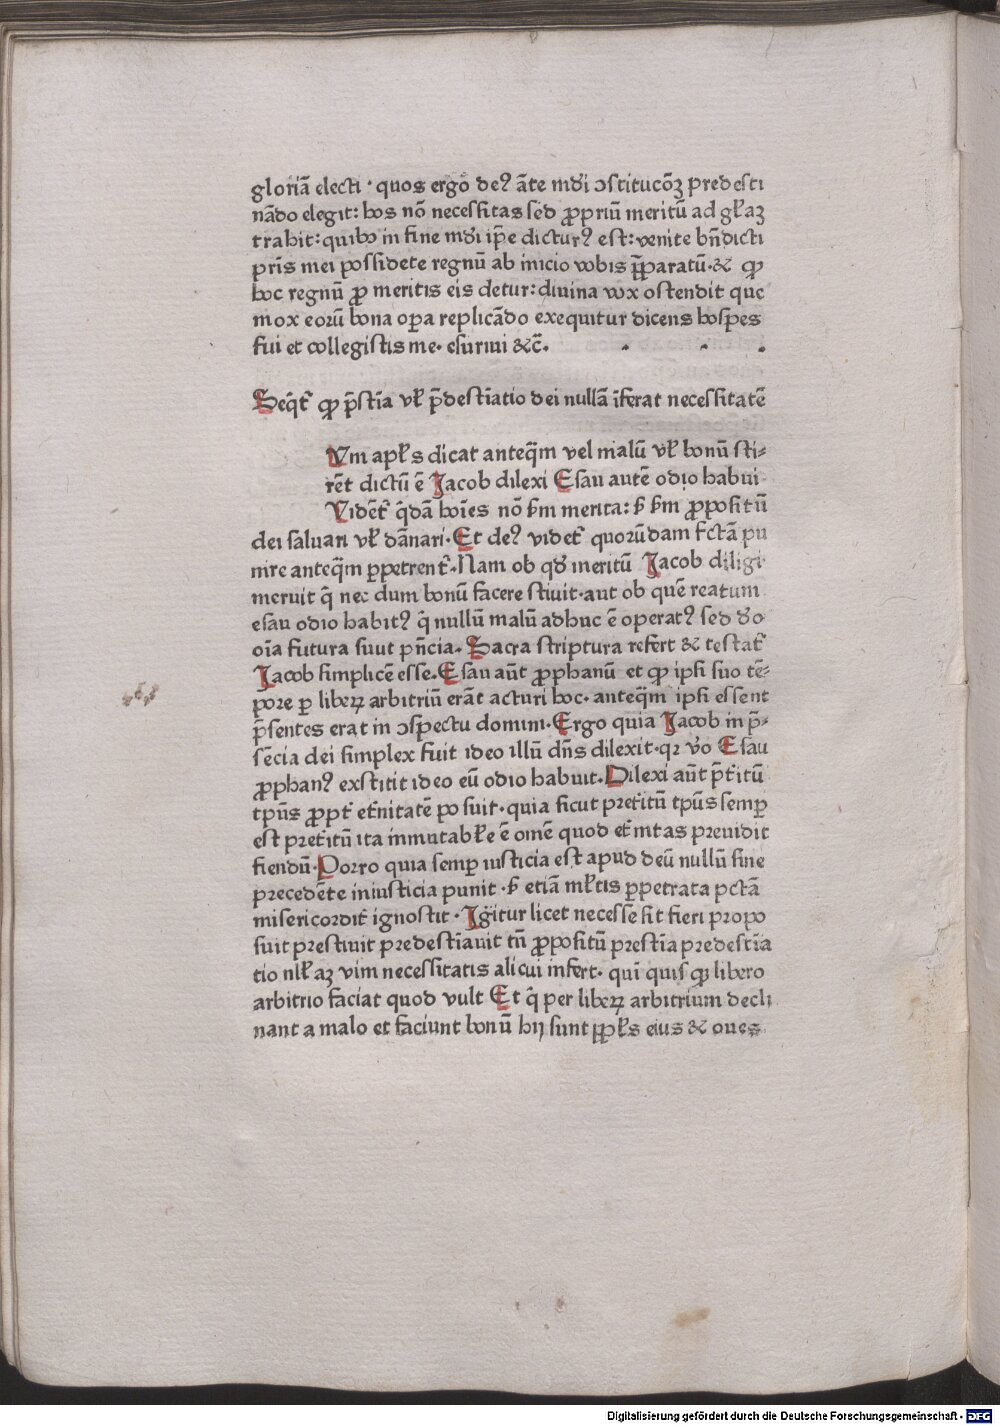 gloriā electi · quos ergo deꝰ āte mūdi ↄstitucōꝫ predesti
nādo elegit: hos nō necessitas sed ꝓpriū meritū ad gl̄aꝫ
trahit: quibꝰ in fine mūdi ip̄e dicturꝰ est: venite bn̄dicti
pr̄is mei possidete regnū ab inicio vobis p̄paratū · & ꝙ
hoc regnū ꝓ meritis eis detur: diuina vox ostendit que
mox eorū bona oꝑa replicādo exequitur dicens hospes
fui et collegistis me · esuriui &c̄ · · · ·
Seqt̄ ꝙ p̄stīa vl̄ p̄destīatio dei nullā īferat necessitatē
Vm apl̄s dicat anteqm̄ vel malū vl̄ bonū sti⸗
rēt dictū ē Jacob dilexi Esau autē odio habui
Vidēt̄ qdā hoīes nō sm̄ merita: s̄ sm̄ ꝓpositū
dei saluari vl̄ dānari · Et deꝰ videt̄ quorūdam fctā pu
nire anteqm̄ ꝑpetrent̄ · Nam ob qd̄ meritū Jacob diligi
meruit q̄ nec dum bonū facere stiuit · aut ob quē reatum
esau odio habitꝰ q̄ nullū malū adhuc ē operatꝰ sed do
oīa futura suut pn̄cia · Sacra striptura refert & testat̄
Jacob simplicē esse · Esau aūt ꝓphanū et ꝙ ipsi suo tē⸗
pore ꝑ liberꝝ arbitriū erāt acturi hoc · anteqm̄ ipsi essent
p̄sentes erat in ↄspectu domini · Ergo quia Jacob in p̄⸗
sēcia dei simplex fuit ideo illū dn̄s dilexit · qꝛ v̄o Esau
ꝓphanꝰ exstitit ideo eū odio habuit · Dilexi aūt p̄titū
tpūs ꝓpt̄ et̄nitatē posuit · quia sicut pret̄itū tpūs semꝑ
est pret̄itū ita inmutabl̄e ē omē quod et̄nitas preuidit
fiendū · Porro quia semꝑ iusticia est apud deū nullū sine
precedēte iniusticia punit · s̄ etiā ml̄tis ꝑpetrata pctā
misericordit̄ ignostit · Igitur licet necesse sit fieri propo
suit prestiuit predestīauit tn̄ ꝓpositū prestīa predestīa
tio nl̄l aꝫ vim necessitatis alicui infert · quī quisqꝫ libero
arbitrio faciat quod vult Et q̄ per liberꝝ arbitrium decli
nant a malo et faciunt bonū hij sunt ppl̄s eius & oues
Digitalisierung gefördert durch die Deutsche Forschungsgemeinschaft - DFG